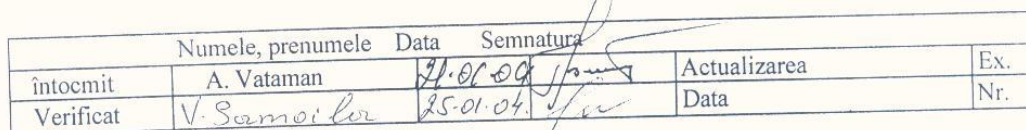 Numele, prenumele Data Semnatura
întocmit A. Vataman 21.01.04 Actualizarea Ex.
Verificat V. Samoilov 25.01.04. Data Nr.